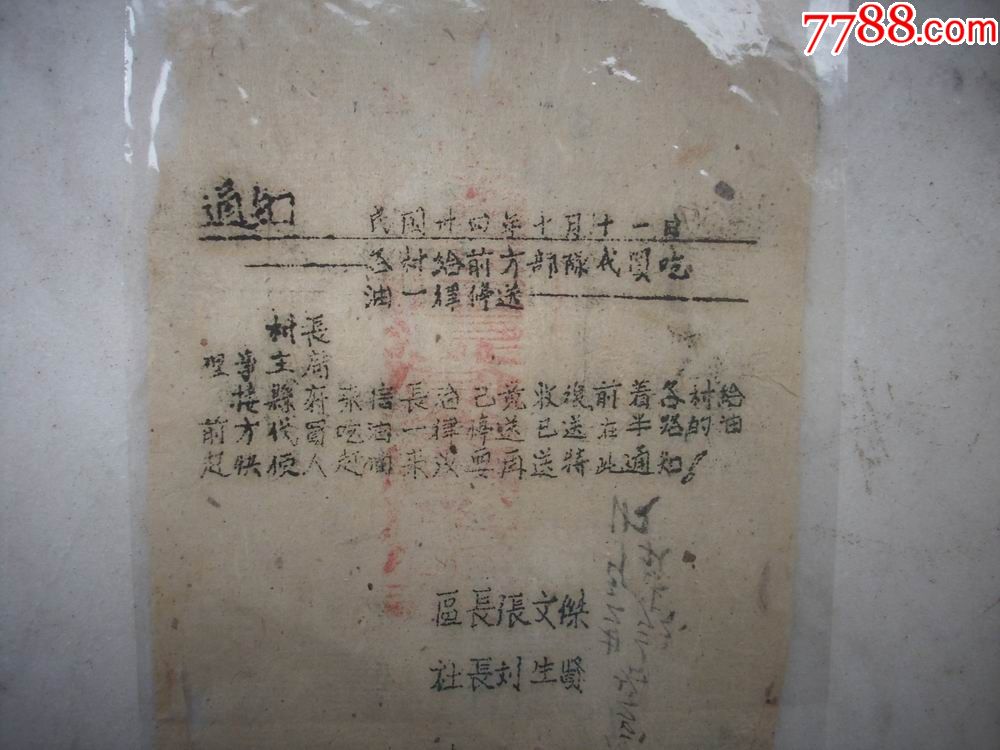 7788.com
通知
民國卅四年十月十一日
各村給前方部隊代買吃
油一律停送
村長
理事主席
接縣府來信長治已收後前着各村給
前方代買吃油一律停送已送在半路的油
趕快使人趕回來要再送特此通知!
區長張文傑
社長刘生賢